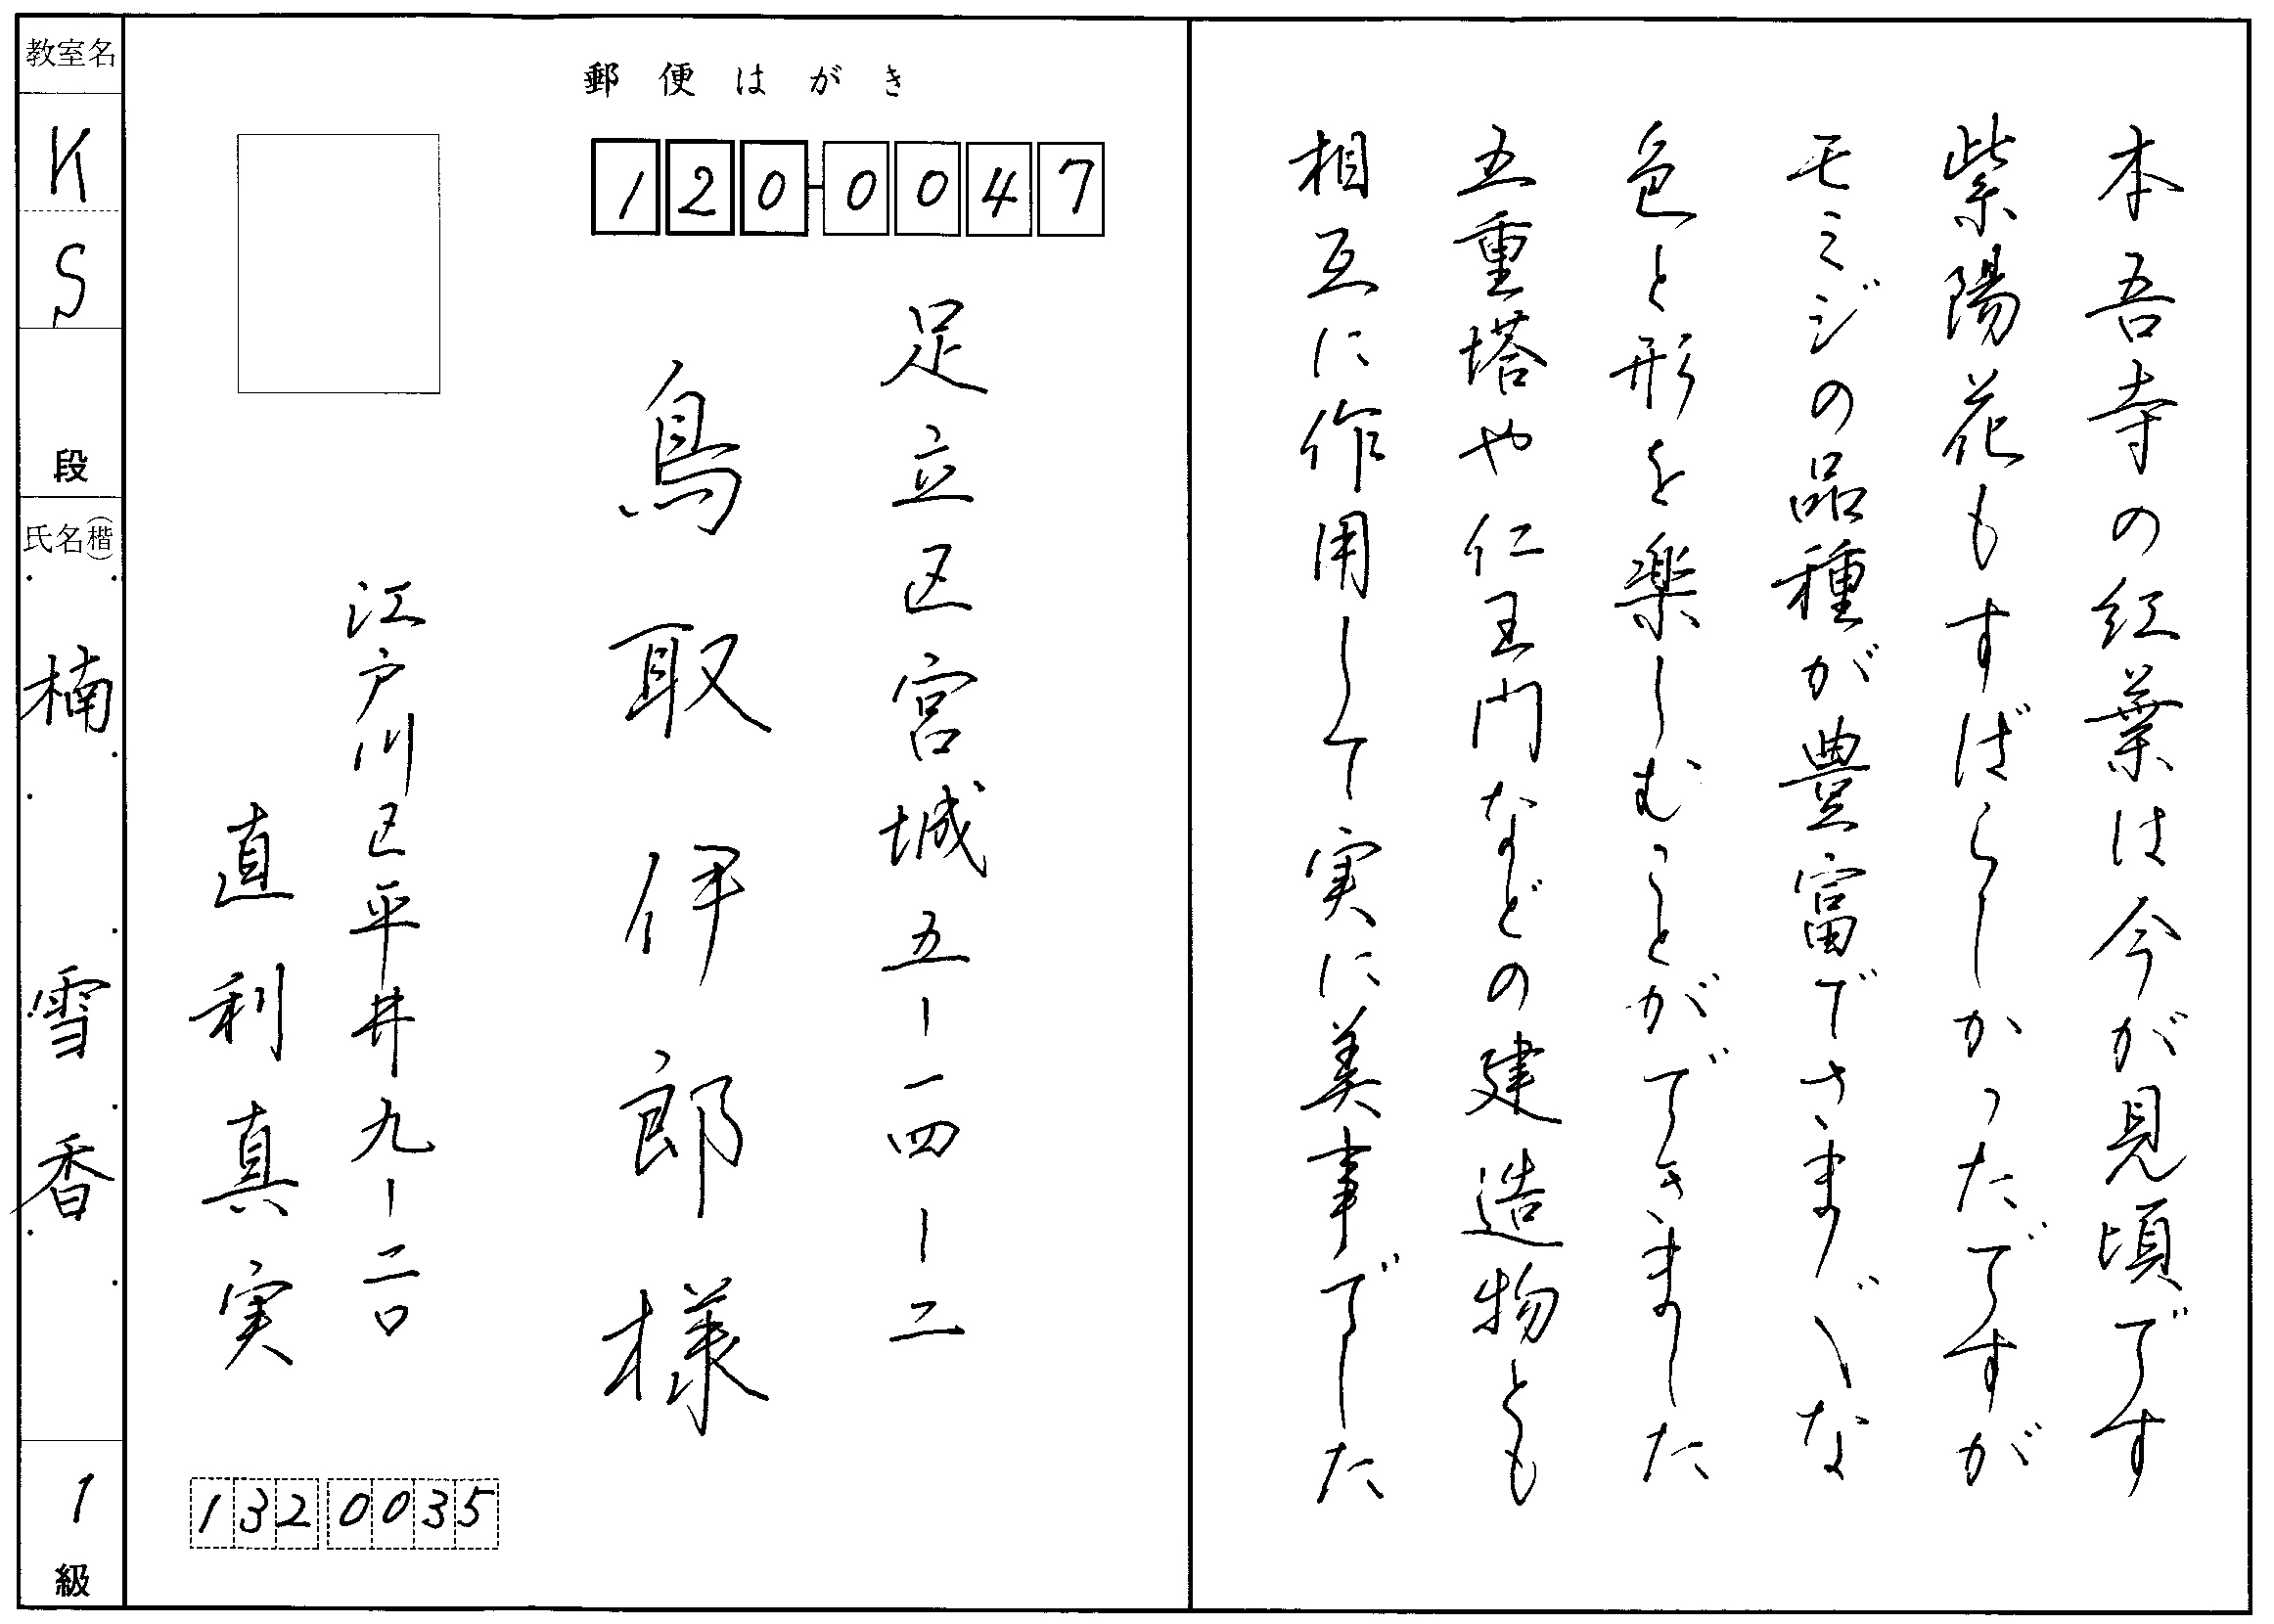 本吾寺の紅葉は今が見頃です
紫陽花もすばらしかったですが
モミジの品種が豊富でさまざまな
色と形を楽しむことができました
五重塔や仁王門などの建造物とも
相互に作用して実に美事でした
郵便はがき
120-0047
足立区宮城五-一四-二
鳥取伊郎様
江戸川区平井九-二〇
直利真実
132 0035
教室名
KS
段
氏名(楷)
楠雪香
1
級